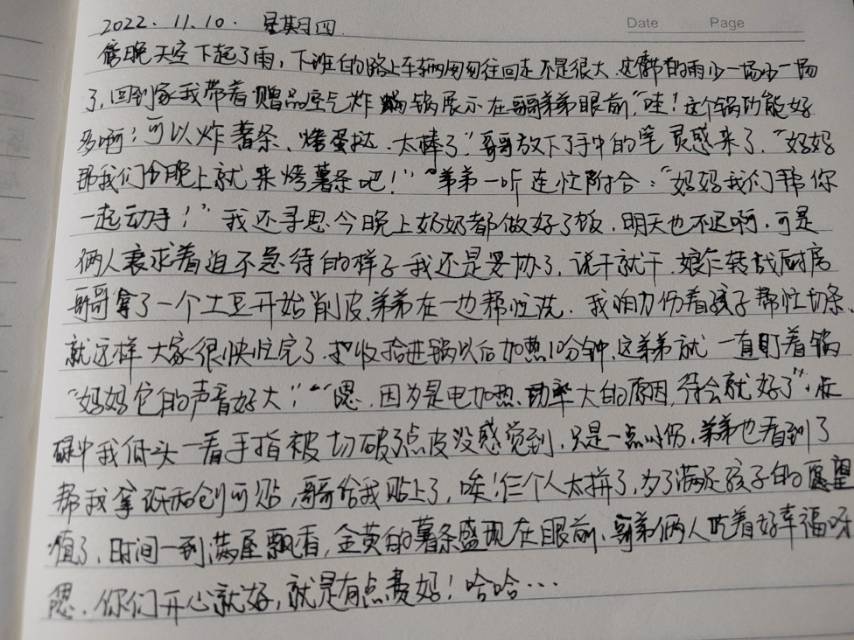 Date Page
2022.11.10. 星期四.
傍晚天空下起了雨,下班的路上车辆匆匆往回走不是很大,这边的雨少一场少一场
了,回到家我带着赠品空气炸锅展示在哥哥弟弟眼前,"哇!这个锅功能好
多啊!可以炸薯条、烤蛋挞.太棒了"哥哥放下了手中的笔灵感来了."妈妈
帮我们今晚上就来烤薯条吧!""弟弟一听连忙附合:"妈妈我们帮你
一起动手!"我还寻思今晚上奶奶都做好了饭,明天也不迟啊.可是
俩人哀求着迫不急待的样子我还是妥协了,说干就干.娘仨转战厨房
哥哥拿了一个土豆开始削皮,弟弟在一边帮忙洗.我着孩子帮忙切条.
就这样大家很快忙完了.把收拾进锅以后加热10分钟,这弟弟就一直盯着锅
"妈妈它的声音好大!""嗯,因为是电加热、功率大的原因,待会就好了".忙
碌中我低头一看手指被切破了点皮没感觉到.只是一点小伤,弟弟也看到了
帮我拿创可贴,哥哥给我贴上了,唉!仨个人太拼了,为了满足孩子的愿望
值了,时间一到满屋飘香,金黄的薯条盛现在眼前、哥弟俩人吃着好幸福呀
嗯.你们开心就好,就是有点费妈!哈哈...